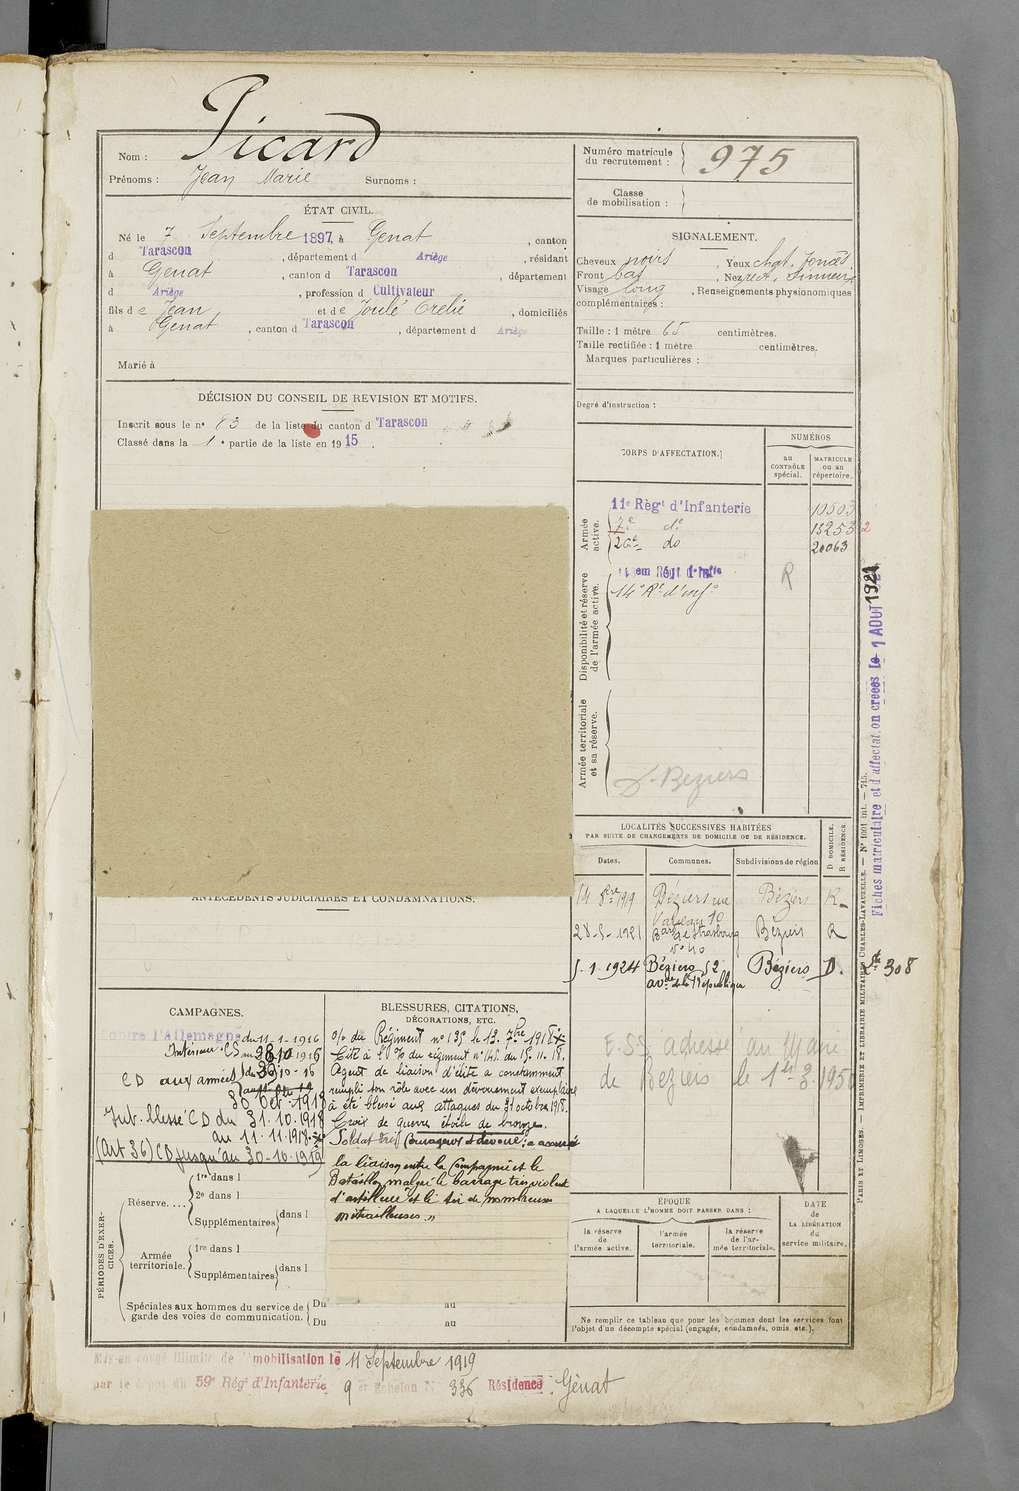 Picard
Nom :
Prénoms : Jean Marie Surnoms :
Numéro matricule du recrutement : 975
Classe de mobilisation :
ÉTAT CIVIL.
Né le 7 Septembre 1897, à Genat , canton
d Tarascon , département d Ariège , résidant
à Genat , canton d Tarascon , département
d Ariège , profession d Cultivateur
fils de Jean et de Joulé , domiciliés
à Genat , canton d Tarascon , département d Ariège
Marié à
SIGNALEMENT.
Cheveux noirs , Yeux chat. foncés
Front bas , Nez rect. sinueux
Visage long , Renseignements physionomiques
complémentaires :
Taille : 1 mètre 65 centimètres.
Taille rectifiée : 1 mètre centimètres.
Marques particulières :
Degré d'instruction :
DÉCISION DU CONSEIL DE REVISION ET MOTIFS.
Inscrit sous le nº 83 de la liste du canton d Tarascon
Classé dans la 1e partie de la liste en 1915.
CORPS D'AFFECTATION.
NUMÉROS
au CONTRÔLE spécial.
MATRICULE ou au répertoire.
Armée active.
11e Régt d'Infanterie 10503
7e do 13253 2
26e do 20063
Disponibilité et réserve de l'armée active.
11 em Régt d'Inftie R
14e Rt d'infie
Armée territoriale et sa réserve.
Dt Béziers
Fiches matriculaire et d'affectation créées le 1 AOUT 1921
LOCALITÉS SUCCESSIVES HABITÉES
PAR SUITE DE CHANGEMENTS DE DOMICILE OU DE RÉSIDENCE.
Dates. Communes. Subdivisions de région D DOMICILE. R RÉSIDENCE
14 8bre 1919 Béziers rue Béziers R
10
28-5-1921 Bard de Strasbourg Béziers R
nº 40
5.1.1924 Béziers 52 Béziers D. 308
avue de la République
ANTÉCÉDENTS JUDICIAIRES ET CONDAMNATIONS.
CAMPAGNES.
Contre l'Allemagne du 11-1-1916
Intérieur CS au 28.10.1916
CD aux armées du 29-10-16
30 Oct. 1918
Int. blessé CD du 31.10.1918
au 11.11.1918
(Art 36) CD jusqu'au 30-10-1919
BLESSURES, CITATIONS,
DÉCORATIONS, ETC.
o/o du Régiment nº 135 le 12. 7bre 1918
Cité à l'O/o du régiment nº 145 du 15.11.18.
Agent de liaison d'élite a constamment
rempli son rôle avec un dévouement exemplaire
a été blessé aux attaques du 31 octobre 1918.
Croix de guerre étoile de bronze.
Soldat très courageux et dévoué ; a assuré
la liaison entre la Compagnie et le
Bataillon malgré le barrage très violent
d'artillerie et le tir de nombreuses
mitrailleuses."
E.SS adressé au 14 ane
de Béziers le 1er 3.1950
PÉRIODES D'EXERCICES.
Réserve. . . . 1re dans l
2e dans l
Supplémentaires dans l
Armée territoriale. 1re dans l
Supplémentaires dans l
Spéciales aux hommes du service de garde des voies de communication.
Du au
Du au
ÉPOQUE
A LAQUELLE L'HOMME DOIT PASSER DANS :
la réserve de l'armée active.
l'armée territoriale.
la réserve de l'armée territoriale.
DATE de LA LIBÉRATION du service militaire.
Ne remplir ce tableau que pour les hommes dont les services font
l'objet d'un décompte spécial (engagés, condamnés, omis, etc.).
PARIS ET LIMOGES. — IMPRIMERIE ET LIBRAIRIE MILITAIRES CHARLES-LAVAUZELLE. — Nº 1001 int. — 715.
Mis en congé illimité de démobilisation le 11 Septembre 1919
par le dépôt du 59e Régt d'Infanterie 9 e Echelon Nº 336 Résidence Génat